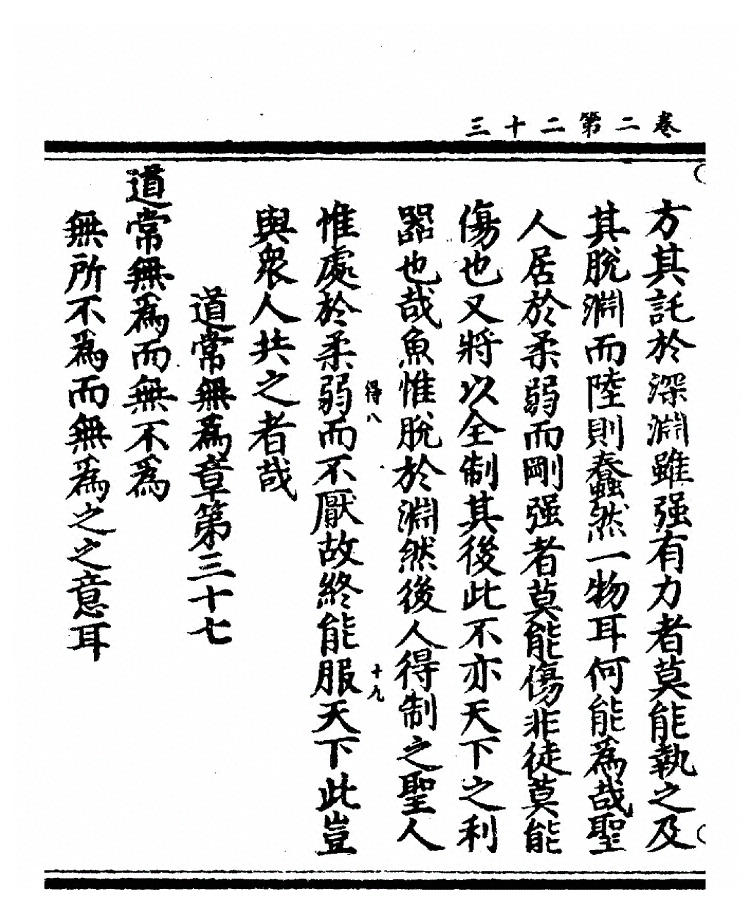 卷二第二十三
方其託於深淵雖强有力者莫能執之及
其脫淵而陸則蠢然一物耳何能爲哉聖
人居於柔弱而剛强者莫能傷非徒莫能
傷也又將以全制其後此不亦天下之利
器也哉魚惟脫於淵然後人得制之聖人
惟處於柔弱而不厭故終能服天下此豈
得八
十九
與衆人共之者哉
道常無爲章第三十七
道常無爲而無不爲
無所不爲而無爲之之意耳